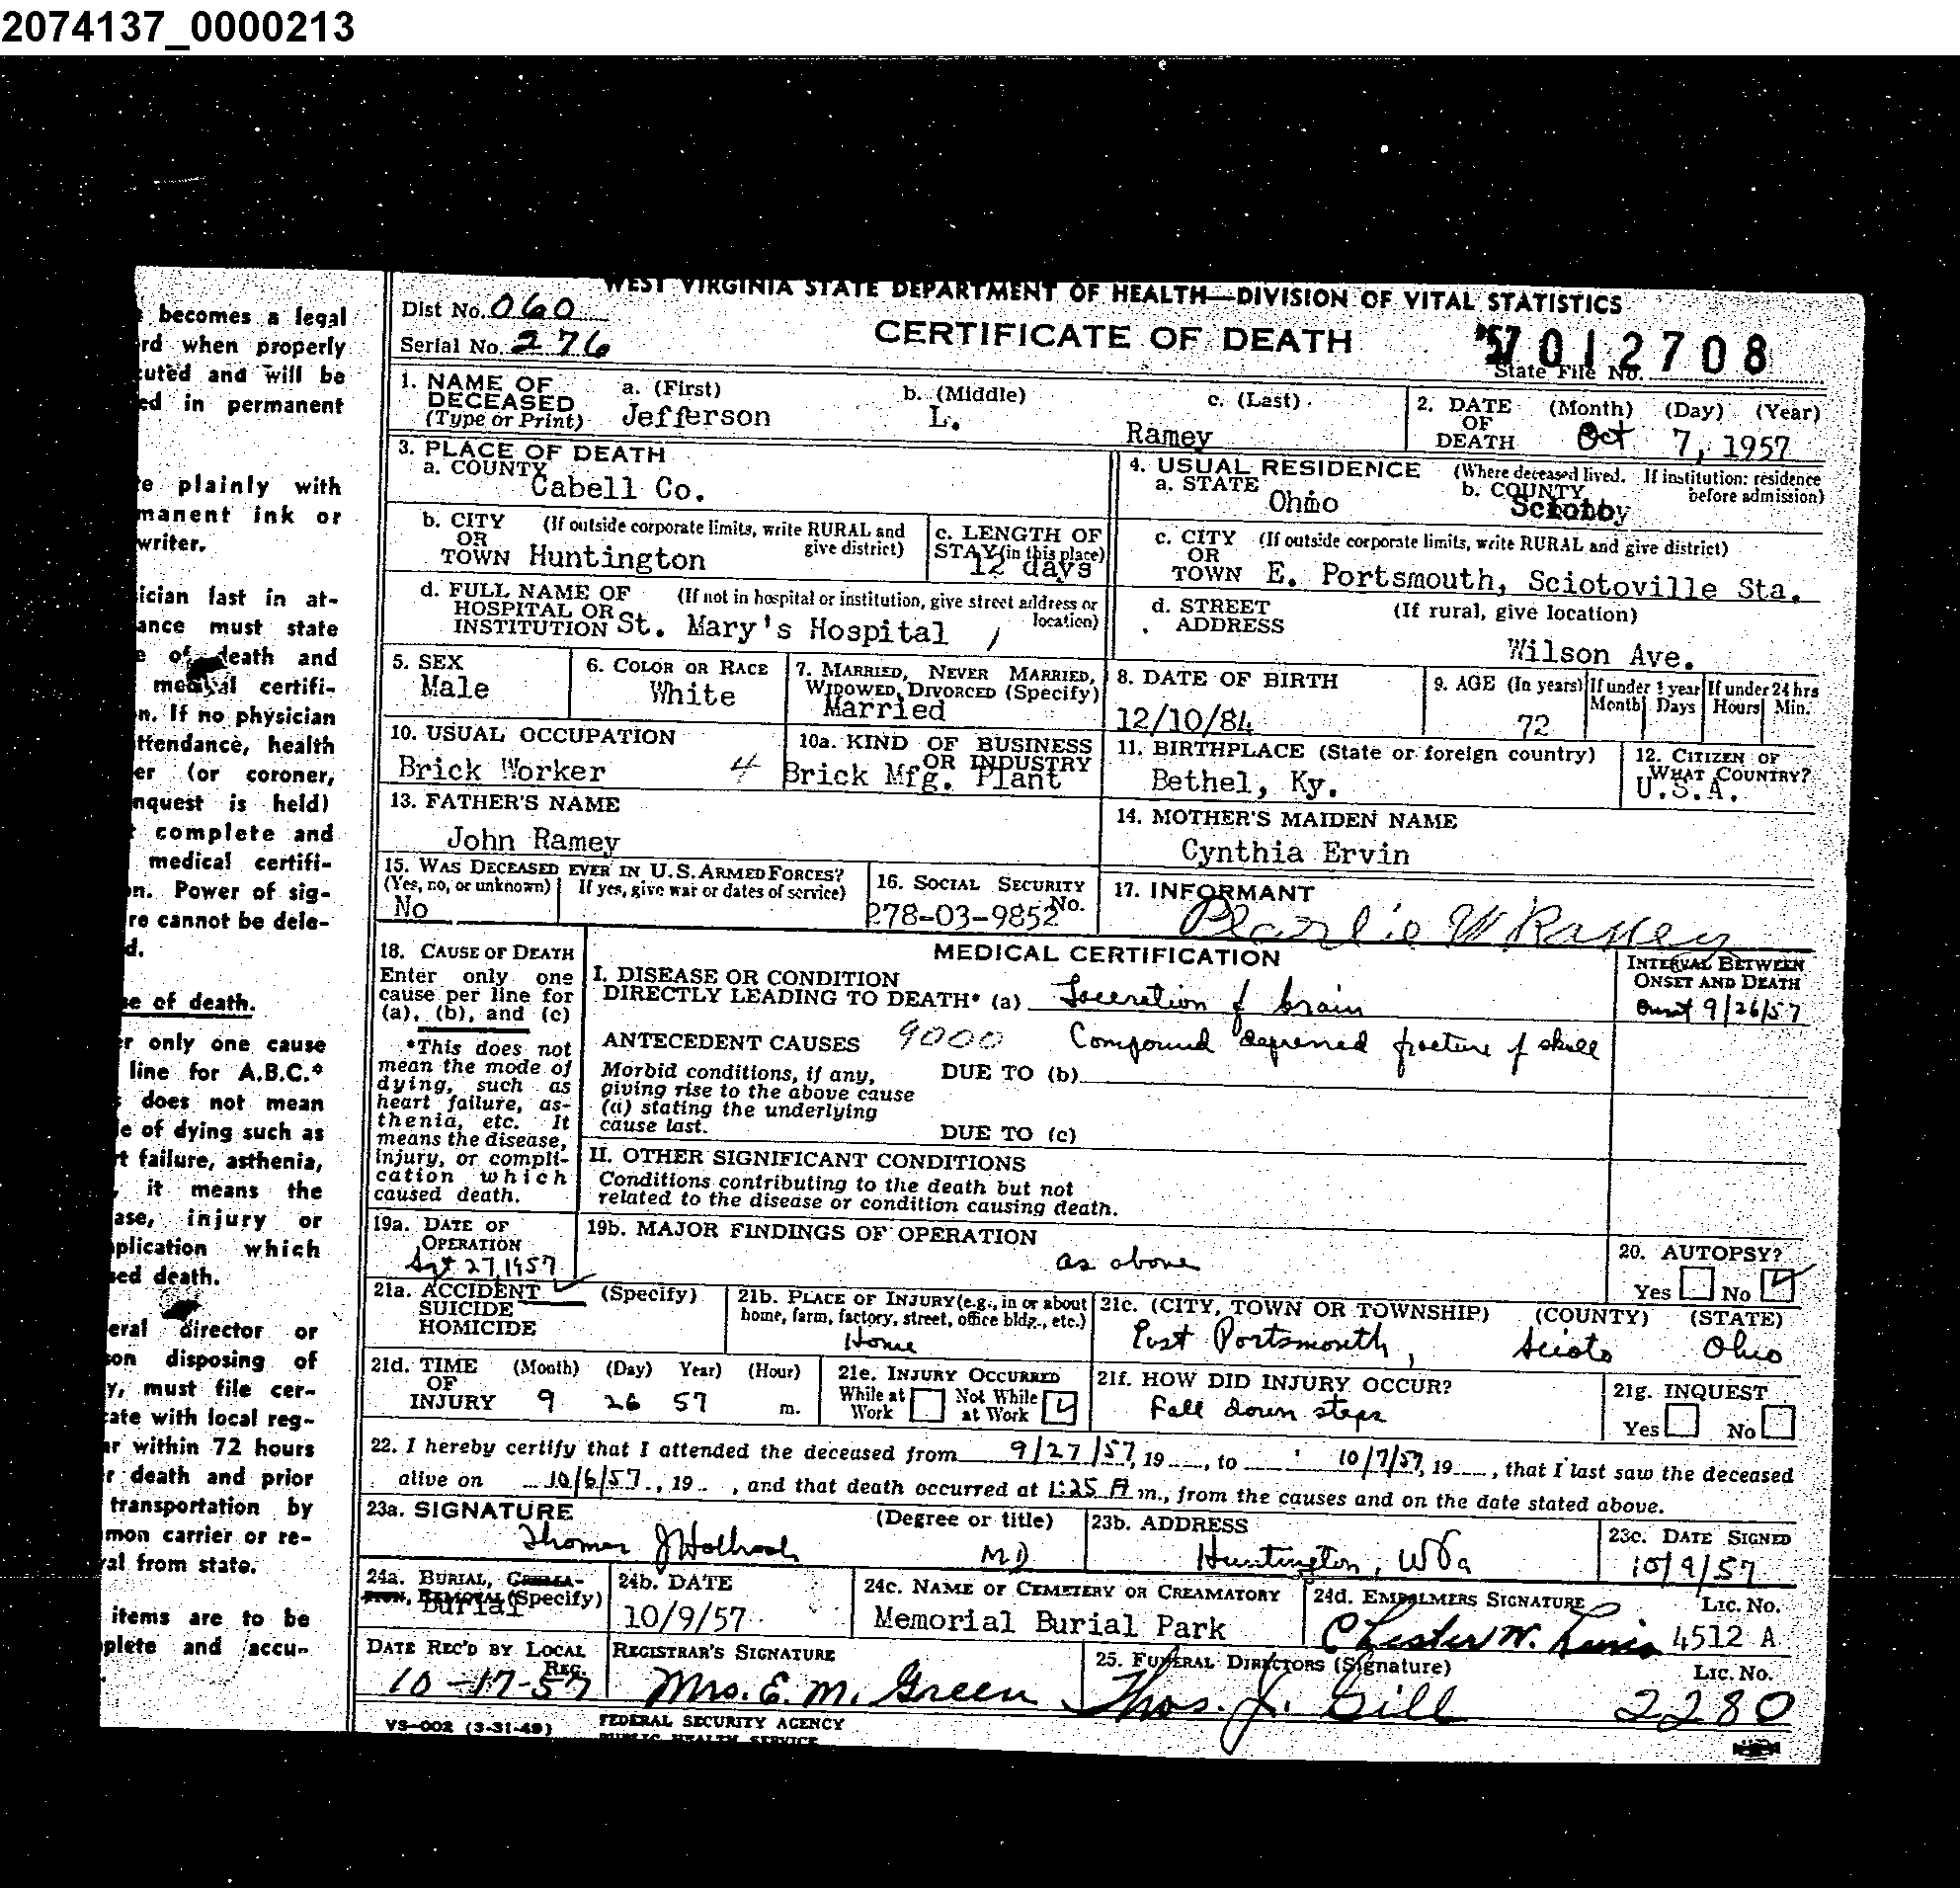 2074137_0000213
WEST VIRGINIA STATE DEPARTMENT OF HEALTH—DIVISION OF VITAL STATISTICS
Dist No. 060
Serial No. 276
CERTIFICATE OF DEATH
57 012708
State File No.
1. NAME OF DECEASED (Type or Print) a. (First) Jefferson b. (Middle) L. c. (Last) Ramey
2. DATE OF DEATH (Month) (Day) (Year) Oct 7, 1957
3. PLACE OF DEATH
a. COUNTY Cabell Co.
4. USUAL RESIDENCE (Where deceased lived. If institution: residence before admission)
a. STATE Ohio b. COUNTY
b. CITY OR TOWN (If outside corporate limits, write RURAL and give district) Huntington
c. LENGTH OF STAY (in this place) 12 days
c. CITY OR TOWN (If outside corporate limits, write RURAL and give district) E. Portsmouth, Sciotoville Sta.
d. FULL NAME OF HOSPITAL OR INSTITUTION (If not in hospital or institution, give street address or location) St. Mary's Hospital
d. STREET ADDRESS (If rural, give location) Wilson Ave.
5. SEX Male
6. COLOR OR RACE White
7. MARRIED, NEVER MARRIED, WIDOWED, DIVORCED (Specify) Married
8. DATE OF BIRTH 12/10/84
9. AGE (In years) 72 If under 1 year Month Days If under 24 hrs Hours Min.
10. USUAL OCCUPATION Brick Worker 4
10a. KIND OF BUSINESS OR INDUSTRY Brick Mfg. Plant
11. BIRTHPLACE (State or foreign country) Bethel, Ky.
12. CITIZEN OF WHAT COUNTRY? U.S.A.
13. FATHER'S NAME John Ramey
14. MOTHER'S MAIDEN NAME Cynthia Ervin
15. WAS DECEASED EVER IN U.S. ARMED FORCES? (Yes, no, or unknown) If yes, give war or dates of service) No
16. SOCIAL SECURITY No. 278-03-9852
17. INFORMANT Pearlie W. Ramey
18. CAUSE OF DEATH
Enter only one cause per line for (a), (b), and (c)
*This does not mean the mode of dying, such as heart failure, asthenia, etc. It means the disease, injury, or complication which caused death.
MEDICAL CERTIFICATION
INTERVAL BETWEEN ONSET AND DEATH
I. DISEASE OR CONDITION DIRECTLY LEADING TO DEATH* (a) Laceration of brain
Onset 9/26/57
ANTECEDENT CAUSES 9000 Compound depressed fracture of skull
Morbid conditions, if any, giving rise to the above cause (a) stating the underlying cause last.
DUE TO (b)
DUE TO (c)
II. OTHER SIGNIFICANT CONDITIONS
Conditions contributing to the death but not related to the disease or condition causing death.
19a. DATE OF OPERATION Sept 27, 1957
19b. MAJOR FINDINGS OF OPERATION as above
20. AUTOPSY? Yes No
21a. ACCIDENT SUICIDE HOMICIDE (Specify)
21b. PLACE OF INJURY (e.g., in or about home, farm, factory, street, office bldg., etc.) Home
21c. (CITY, TOWN OR TOWNSHIP) (COUNTY) (STATE) East Portsmouth, Scioto Ohio
21d. TIME OF INJURY (Month) (Day) Year) (Hour) 9 26 57 m.
21e. INJURY OCCURRED While at Work Not While at Work
21f. HOW DID INJURY OCCUR? Fall down steps
21g. INQUEST Yes No
22. I hereby certify that I attended the deceased from 9/27/57, 19__, to 10/7/57, 19__, that I last saw the deceased
alive on 10/6/57, 19__, and that death occurred at 1:25 A m., from the causes and on the date stated above.
23a. SIGNATURE (Degree or title) Thomas J Holbrook MD
23b. ADDRESS Huntington, WVa
23c. DATE SIGNED 10/9/57
24a. BURIAL, CREMATION, REMOVAL (Specify) Burial
24b. DATE 10/9/57
24c. NAME OF CEMETERY OR CREAMATORY Memorial Burial Park
24d. EMBALMERS SIGNATURE Lic. No. Chester W. 4512 A
DATE REC'D BY LOCAL REG. 10-17-57
REGISTRAR'S SIGNATURE Mrs. E. M. Green
25. FUNERAL DIRECTORS (Signature) Thos. J. Gill Lic. No. 2280
VS-002 (3-31-49)
FEDERAL SECURITY AGENCY
PUBLIC HEALTH SERVICE
becomes a legal
rd when properly
cuted and will be
ed in permanent
e plainly with
manent ink or
writer.
ician last in at-
ance must state
e of death and
medical certifi-
n. If no physician
ttendance, health
er (or coroner,
nquest is held)
t complete and
medical certifi-
n. Power of sig-
re cannot be dele-
d.
se of death.
r only one cause
line for A.B.C.*
s does not mean
e of dying such as
rt failure, asthenia,
, it means the
ase, injury or
plication which
sed death.
eral director or
son disposing of
y, must file cer-
cate with local reg-
ar within 72 hours
r death and prior
transportation by
mon carrier or re-
val from state.
items are to be
plete and accu-